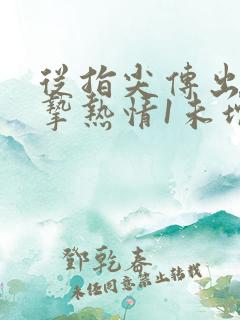 從指尖傳出
摯熱情1未增
鄧乾春
未经同意禁止转载